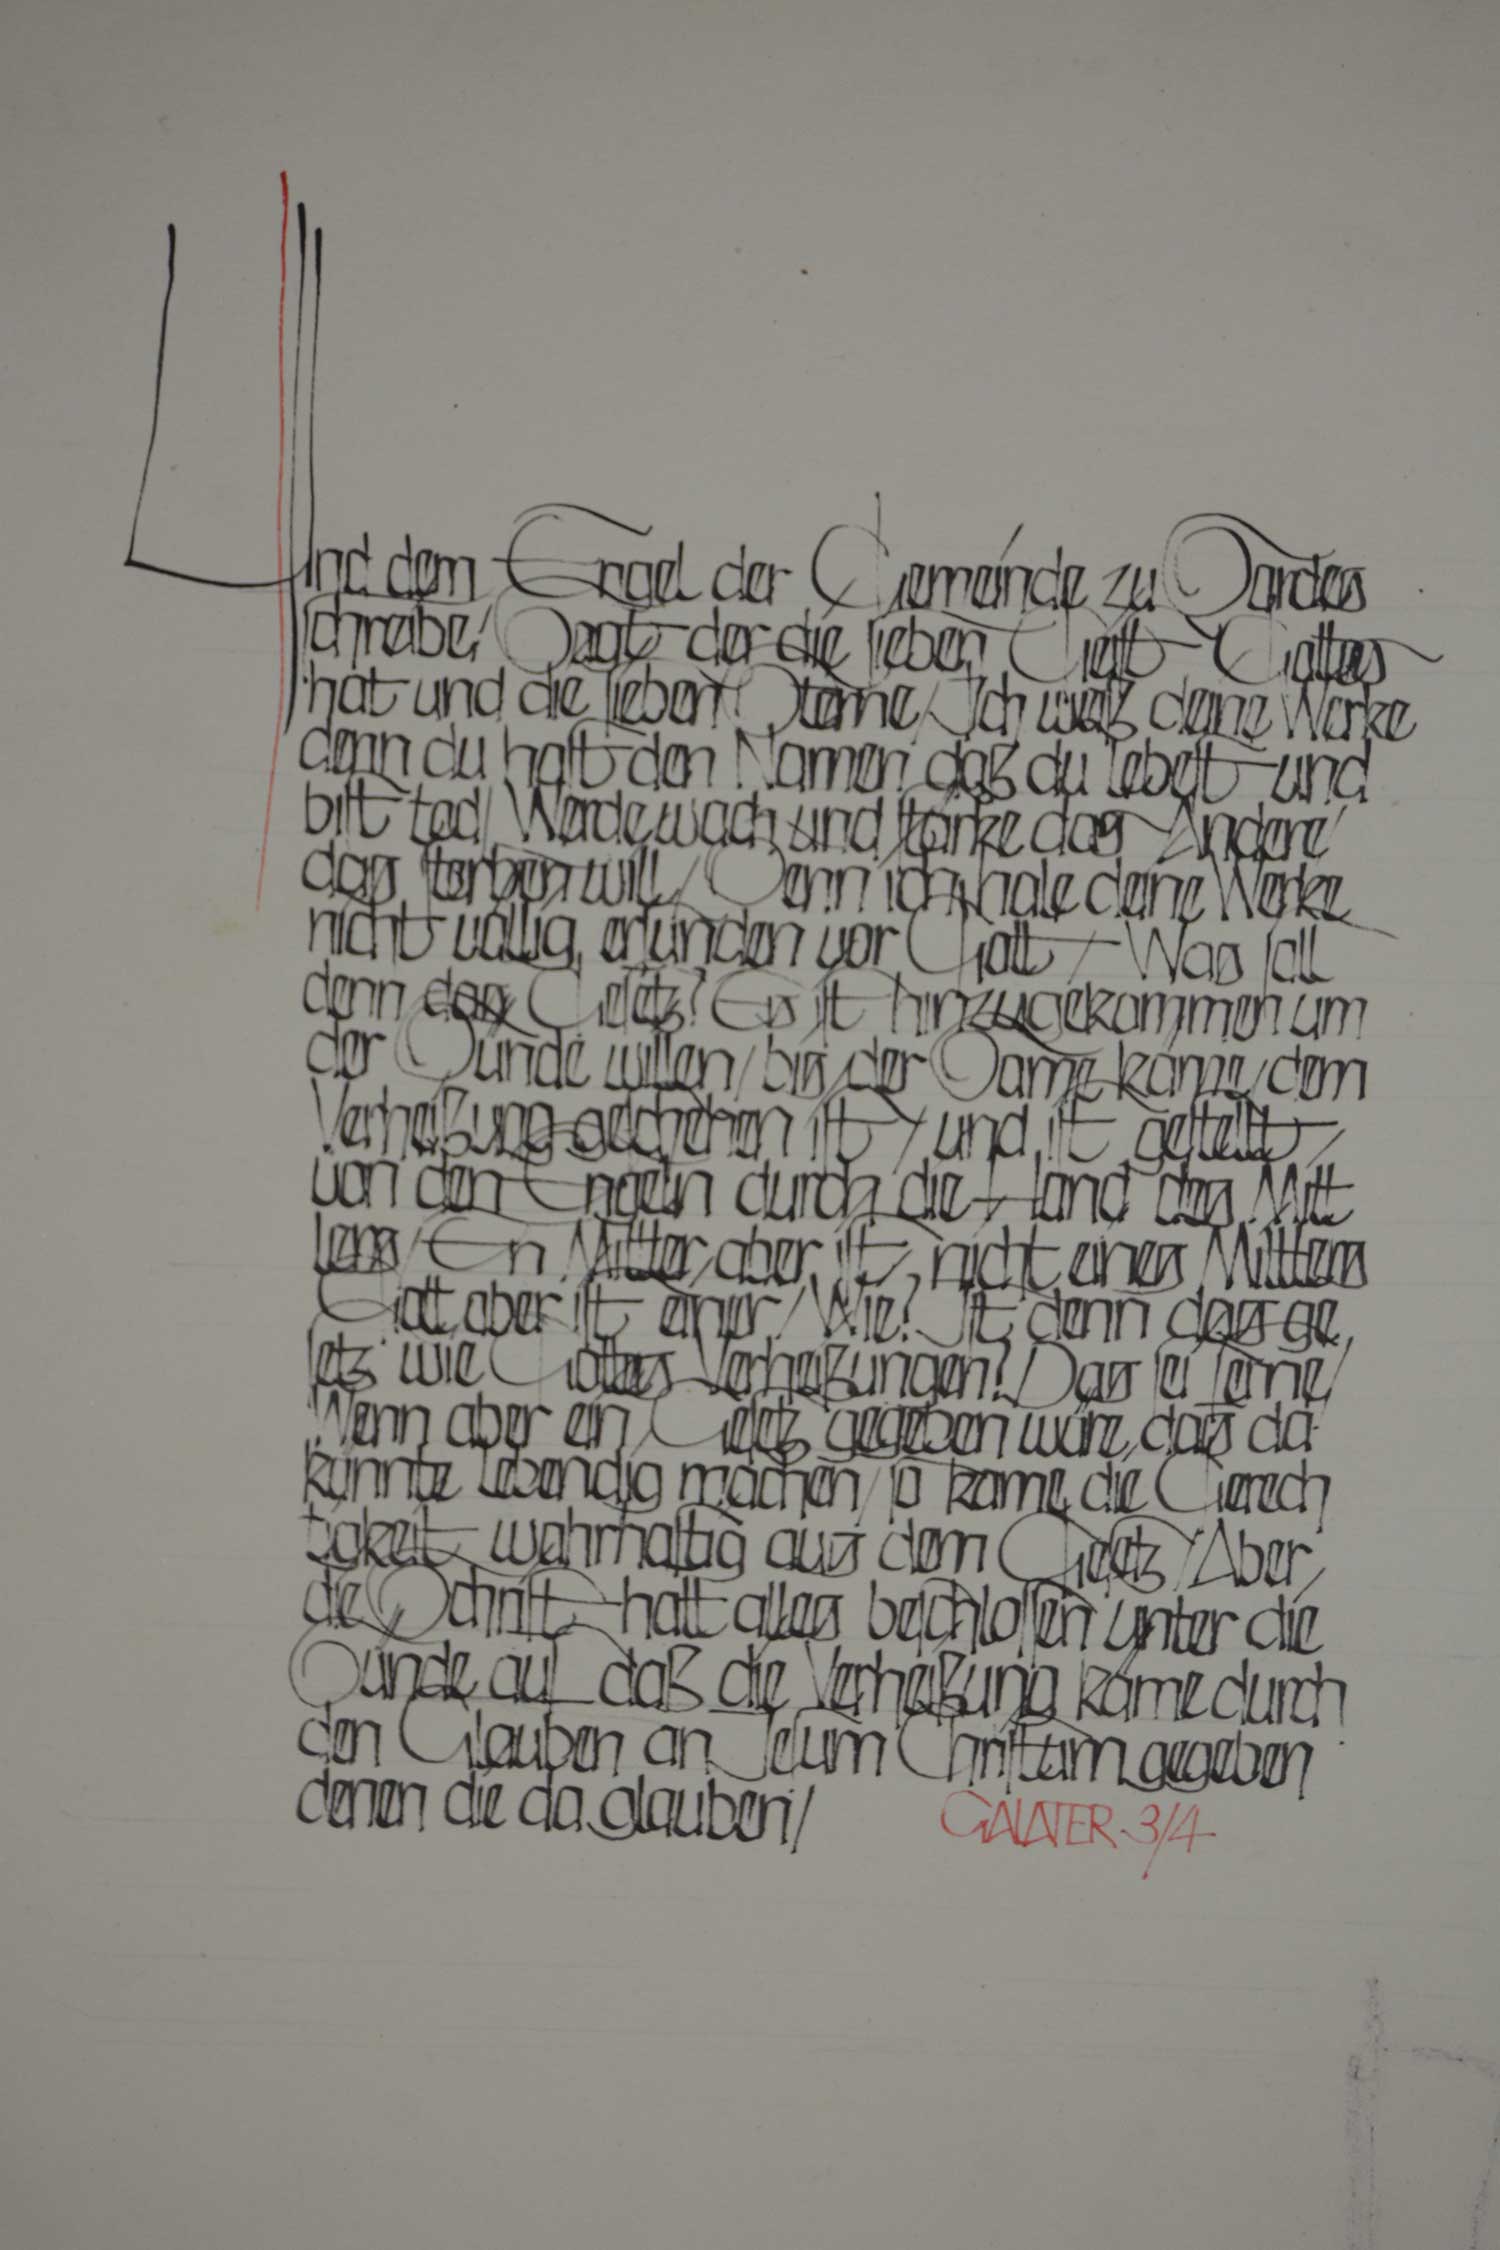 Und dem Engel der Gemeinde zu Sardes
schreibe/ Sagt der die sieben Geist Gottes
hat und die sieben Sterne/ Ich weiß deine Werke
denn du hast den Namen daß du lebest und
bist tod/ Werde wach und stärke das Andere/
das sterben will/ Denn ich hale deine Werke
nicht völlig erfunden vor Gott / Was soll
denn das Gesetz? Es ist hinzugekommen um
der Sünde willen/ bis der Same käme/ dem
Verheißung geschehen ist / und ist gestellt/
von den Engeln durch die Hand des Mitt
lers/ En Mittler aber ist nicht eines Mittlers
Gott aber ist einer/ Wie? Ist denn das ge
setz wie Gottes Verheißungen? Das sei ferne/
Wenn aber ein Gesetz gegeben wäre, das da
künnte lebendig machen/ so käme die Gerech
tigkeit wahrhaftig aus dem Gesetz/ Aber/
die Schrift hatt alles beschlossen unter die
Sünde auf daß die Verheißung käme durch
den Glauben an Jesum Christum gegeben
denen die da glauben/
GALATER 3/4